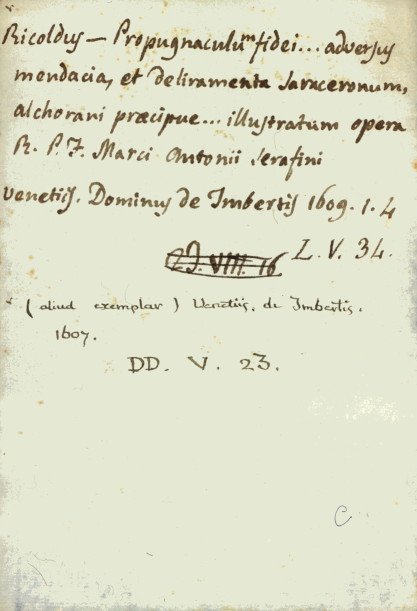 Ricoldus — Propugnaculum fidei... adversus
mendacia, et deliramenta saraceronum,
alchorani præcipue... illustratum opera
R. P. F. Marci Antonii Serafini
Venetiis. Dominus de Imbertis 1609. 1. 4
L. V. 34.
* (aliud exemplar) Venetiis, de Imbertis.
1607.
DD. V. 23.
C